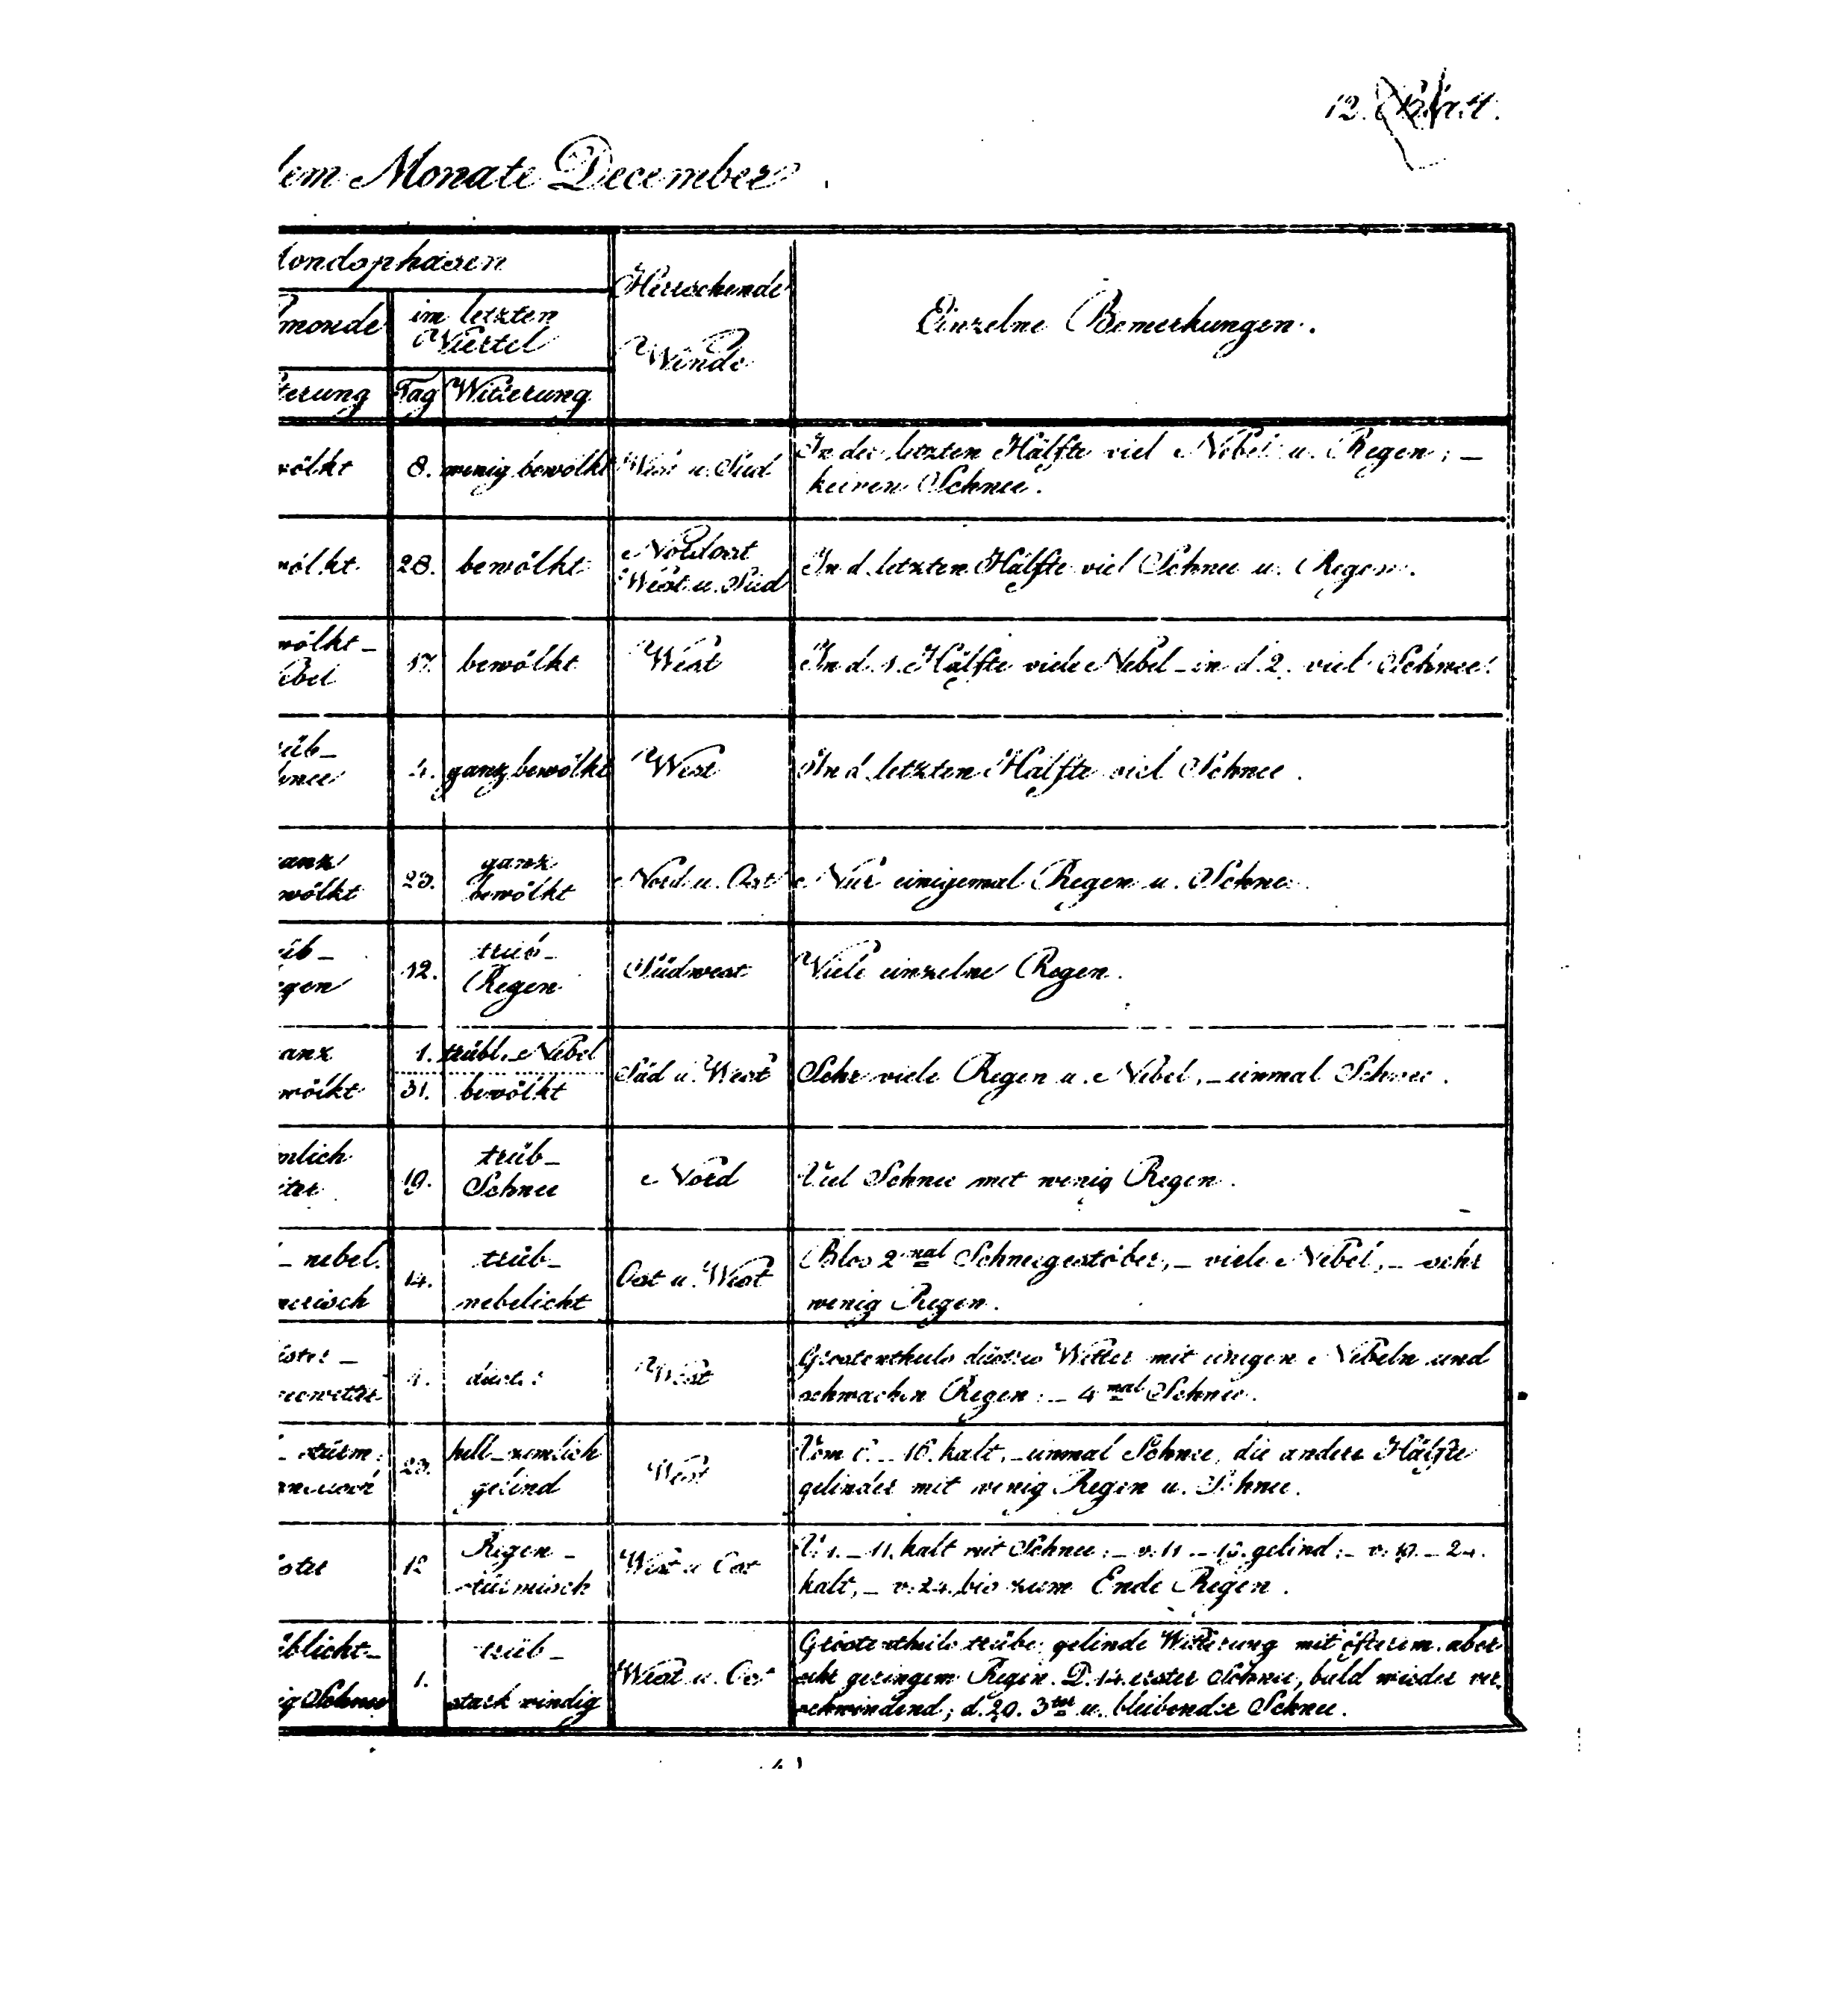 12. Blatt.
dem Monate December
Mondsphasen
Herrschende
Winde
Einzelne Bemerkungen.
monde
im letzten
Viertel
terung Tag Witterung
wölkt 8. wenig bewölkt West u. Süd In der letzten Hälfte viel Nebel u. Regen; –
keinen Schnee.
wölkt 28. bewölkt Nordost
West u. Süd
In d. letzten Hälfte viel Schnee u. Regen.
wölkt –
ebel
17. bewölkt West In d. 1. Hälfte viele Nebel – in d. 2. viel Schnee.
rüb –
hnee
4. ganz bewölkt West In d. letzten Hälfte viel Schnee.
anz
wölkt
23. ganz
bewölkt
Nord u. Ost Nur einigemal Regen u. Schnee.
üb –
egen
12. trüb –
Regen
Südwest Viele einzelne Regen.
anz
wölkt
1. trübl. Nebel
31. bewölkt
Süd u. West Sehr viele Regen u. Nebel, – einmal Schnee.
mlich
iter
19. trüb –
Schnee
Nord Viel Schnee mit wenig Regen.
– nebel.
nerisch
14. trüb –
nebelicht
Ost u. West Blos 2 mal Schneegestöber, – viele Nebel, – sehr
wenig Regen.
üster –
4. düster West Grostentheils düstres Wetter mit einigen Nebeln und
schwachen Regen: – 4 mal Schnee.
– stürm.
23. hell – ziemlich
gelind
West Vom – 16. kalt, – einmal Schnee, die andere Hälfte
gelinder mit wenig Regen u. Schnee.
üster 12 Regen –
stürmisch
West u. Ost V. 1. – 11. kalt mit Schnee: – v. 11 – gelind: – v. – 24.
kalt, – v. 24. bis zum Ende Regen.
üblicht –
ig Schnee
1. trüb –
stark windig
West u. Ost Grostentheils trübe gelinde Witterung mit öfterem aber
sehr geringem Regen. D. 14. erster Schnee, bald wieder ver
schwindend; d. 20. 3ter u. bleibender Schnee.